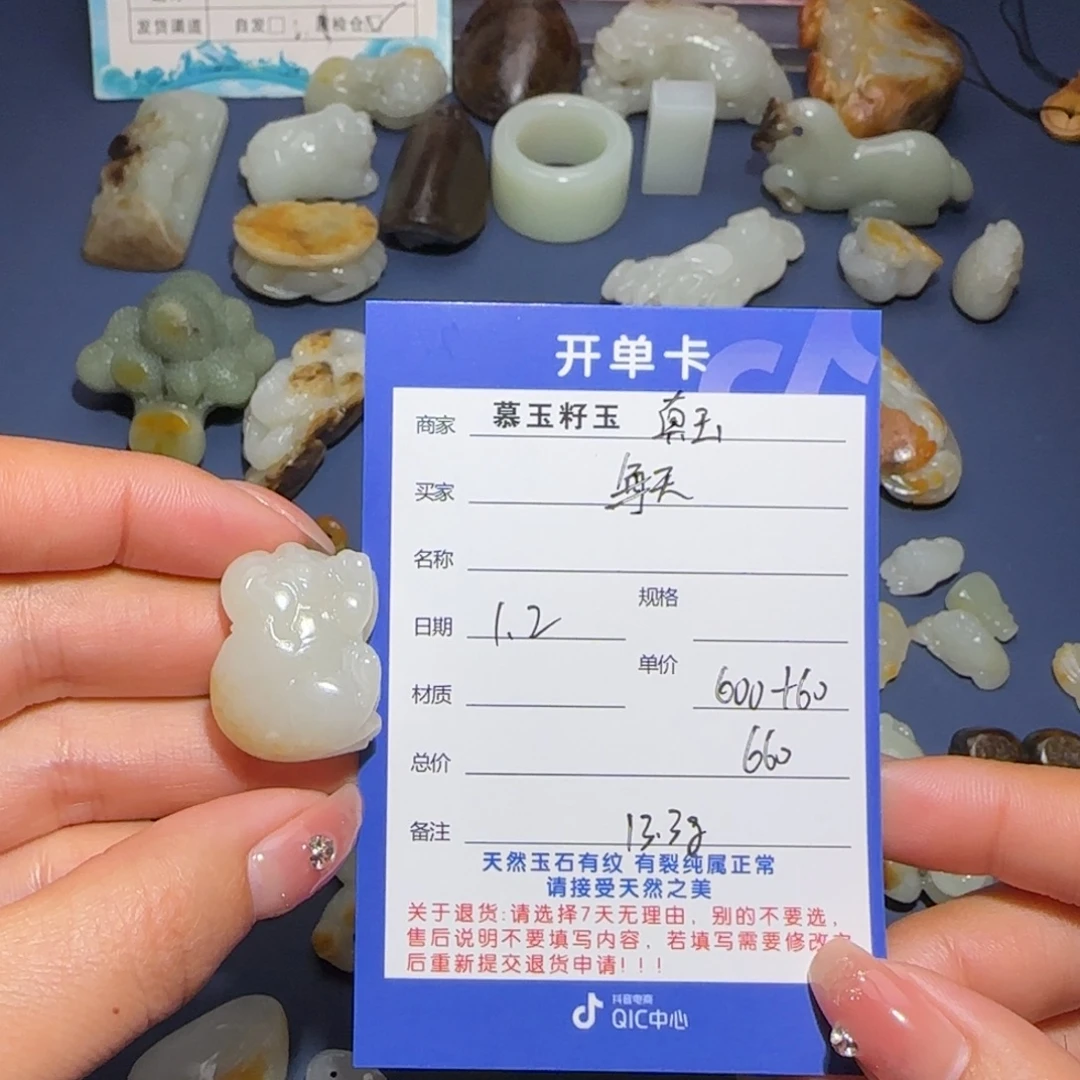 发货渠道 自发□ 质检仓☑
开单卡
商家 慕玉籽玉 真玉
买家 每天
名称
规格
日期 1.2
单价 600+60
材质
总价 660
备注 13.3g
天然玉石有纹 有裂纯属正常
请接受天然之美
关于退货:请选择7天无理由，别的不要选，
售后说明不要填写内容，若填写需要修改之
后重新提交退货申请!!!
抖音电商
QIC中心